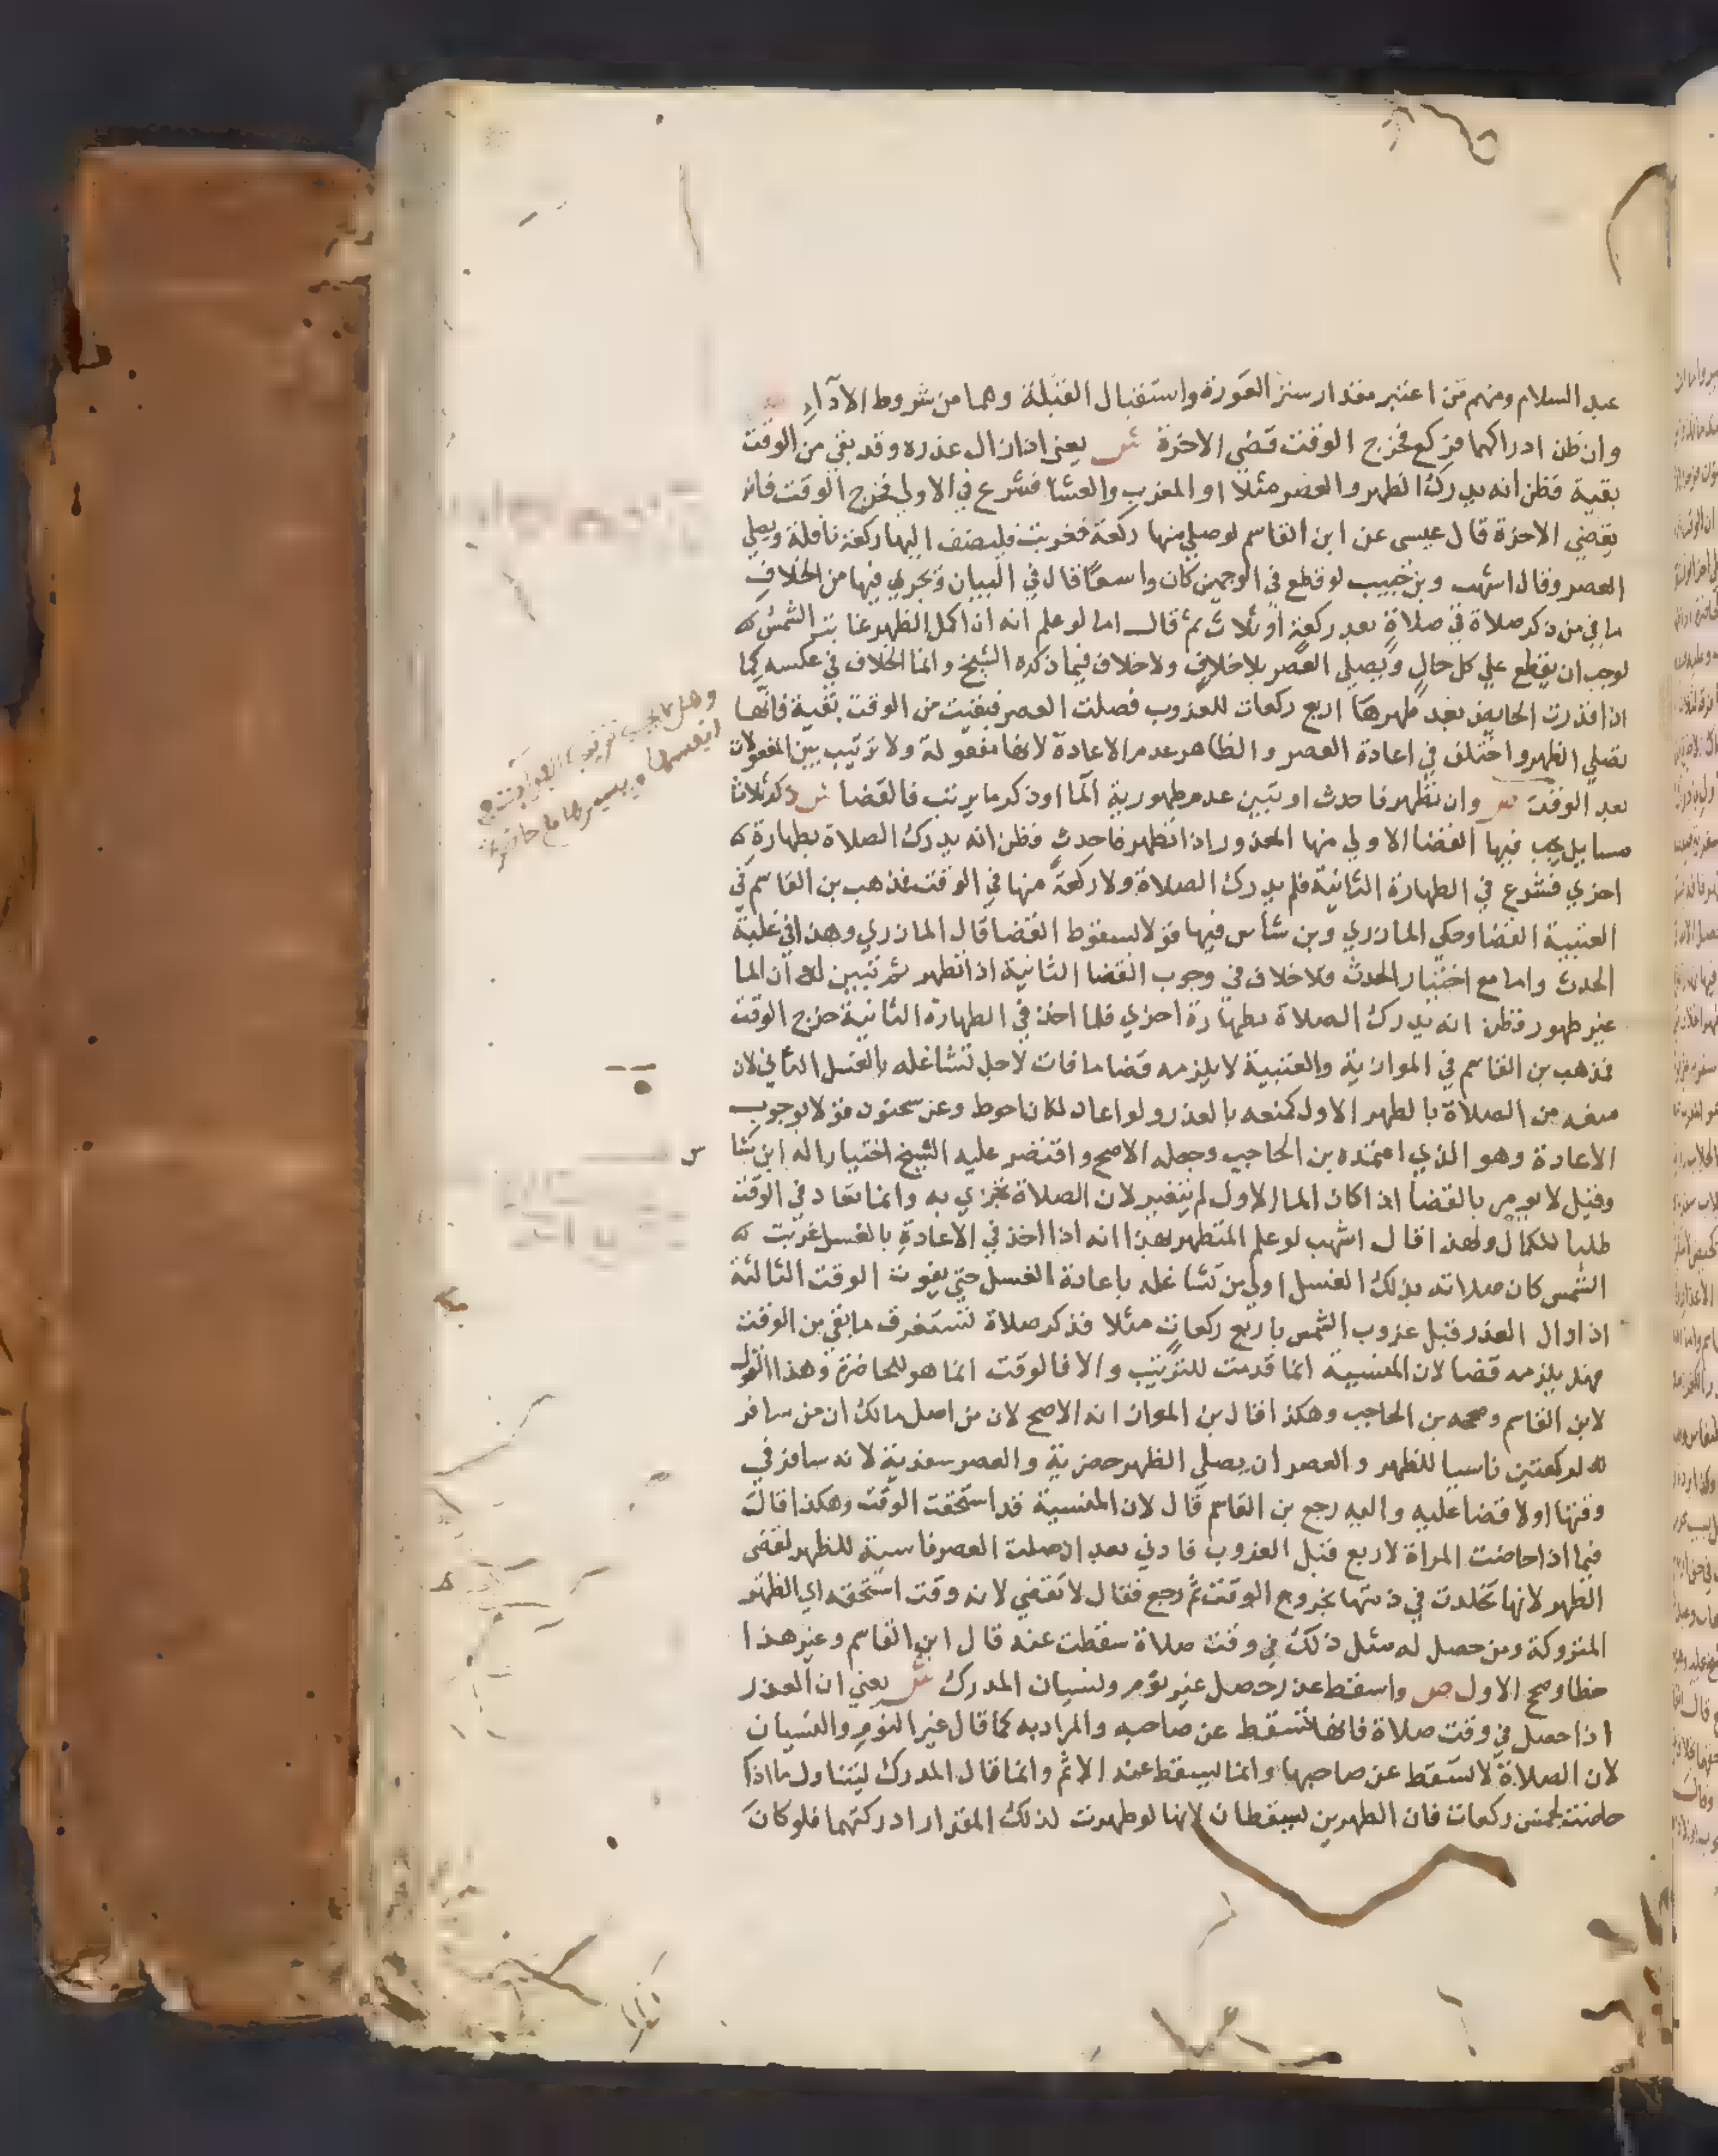 عبد السلام ومنهم من اعتبر مقدار ستر العورة واستقبال القبلة وهما من شروط الادآء
وان ظن ادراكهما فركع فخرج الوقت قضى الاخرة ش يعني اذا زال عذره وقد بقي من الوقت
بقية فظن انه يدرك الظهر والعصر مثلا او المغرب والعشا فشرع في الاولي فخرج الوقت فانه
يقضي الاخرة قال عيسى عن ابن القاسم لو صلي منها ركعة فغربت فليضف اليها ركعة نافلة ويصلي
العصر وقال اشهب وبن حبيب لو قطع في الوجهين كان واسعا قال في البيان ويجري فيها من الخلاف
ما في من ذكر صلاة في صلاة بعد ركعة او ثلاث ثم قال اما لو علم انه ان اكمل الظهر غابت الشمس
لوجب ان يقطع علي كل حال ويصلي العصر بلا خلاف ولا خلاف فيما ذكره الشيخ وانما الخلاف في عكسه كما
اذا قدرت الحايض بعد طهرها اربع ركعات للغروب فصلت العصر فبقيت من الوقت بقية فانها
تصلي الظهر واختلف في اعادة العصر والظاهر عدم الاعادة لانها مفعولة ولا ترتيب بين المفعولات
بعد الوقت ص وان تطهر فاحدث او تبين عدم طهورية المآ او ذكر ما يرتب فالقضا ش ذكر ثلاث
مسايل يجب فيها القضا الاولي منها المعذور اذا تطهر فاحدث فظن انه يدرك الصلاة بطهارة
اخري فشرع في الطهارة الثانية فلم يدرك الصلاة ولا ركعة منها في الوقت فذهب بن القاسم في
العتبية القضا وحكي المازري وبن شاس فيها قولا بسقوط القضا قال المازري وهذا في غلبة
الحدث واما مع اختيار الحدث فلا خلاف في وجوب القضا الثانية اذا تطهر ثم تبين له ان الما
غير طهور فظن انه يدرك الصلاة بطهارة اخري فلما اخذ في الطهارة الثانية خرج الوقت
فذهب بن القاسم في الموازية والعتبية لا يلزمه قضا ما فات لاجل تشاغله بالغسل الثاني لان
منعه من الصلاة بالطهر الاول كمنعه بالعذر ولو اعاد لكان احوط وعن سحنون قولا بوجوب
الاعادة وهو الذي اعتمده بن الحاجب وجعله الاصح واقتصر عليه الشيخ اختيارا له ابن شا س
وقيل لا يومر بالقضا اذا كان الما الاول لم يتغير لان الصلاة تجزي به وانما تعاد في الوقت
طلبا للكمال ولهذا قال اشهب لو علم المتطهر بهذا انه اذا اخذ في الاعادة بالغسل غربت
الشمس كان صلاته بذلك الغسل اولي من تشاغله باعادة الغسل حتي يفوت الوقت الثالثة
اذا زال العذر قبل غروب الشمس باربع ركعات مثلا فذكر صلاة تستغرق ما بقي من الوقت
فهل يلزمه قضا لان المنسية انما قدمت للترتيب والا فالوقت انما هو للحاضرة وهذا القول
لابن القاسم وصححه بن الحاجب وهكذا قال بن المواز انه الاصح لان من اصل مالك ان من سافر
لركعتين ناسيا للظهر والعصر ان يصلي الظهر حضرية والعصر سفرية لانه سافر في
وقتها او لا قضا عليه واليه رجع بن القاسم قال لان المنسية قد استحقت الوقت وهكذا قال
فيما اذا حاضت المراة لاربع قبل الغروب فادني بعد ان صلت العصر ناسية للظهر تقضي
الظهر لانها تخلدت في ذمتها بخروج الوقت ثم رجع فقال لا تقضي لانه وقت استحقه اي الظهر
المتروكة ومن حصل له مثل ذلك في وقت صلاة سقطت عنه قال ابن القاسم وغير هذا
خطا وصح الاول ص واسقط عذر حصل غير نوم ونسيان المدرك ش يعني ان العذر
اذا حصل في وقت صلاة فانها تسقط عن صاحبه والمراد به كما قال غير النوم والنسيان
لان الصلاة لا تسقط عن صاحبها وانما يسقط عنه الاثم وانما قال المدرك ليتناول ما اذا
حاضت لخمس ركعات فان الطهرين يسقطان لانها لو طهرت لذلك المقدار ادركتهما فلو كان
وهل يجب ترتيب الفوايت في
انفسها ويسيرها مع حاضرة